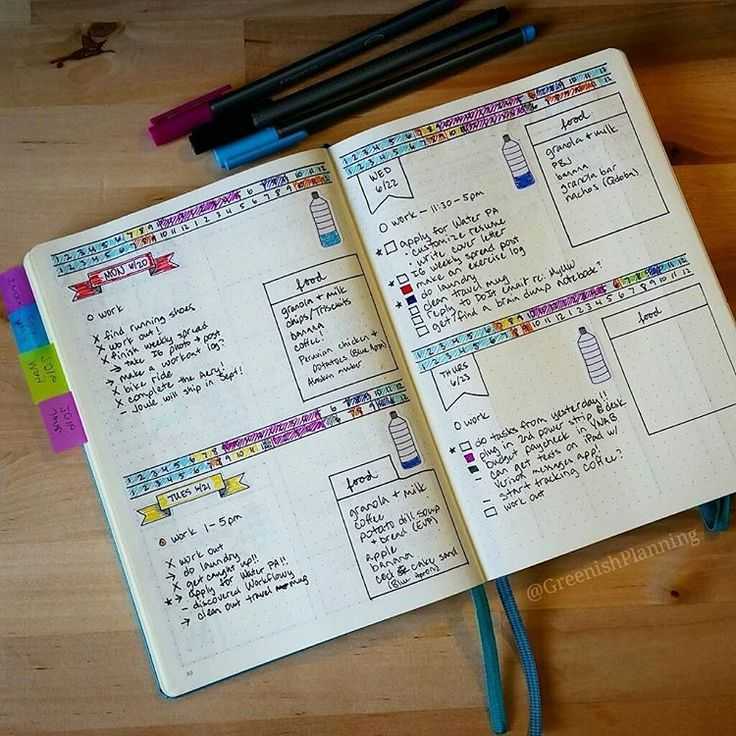 1 2 3 4 5 6 7 8 9 10 11 12 1 2 3 4 5 6 7 8 9 10 11 12
MON 6/20
O work
X find running shoes
X work out!
X finish weekly spread
→ take IG photo + post
→ make a workout log?
X bike ride
X complete the Acry!
- Jowe will ship in Sept!
food
granola + milk
chips/Triscuits
banana
coffee!
Peruvian chicken +
potatoes (Blue Apron)
TUES 6/21
O work 1-5pm
X work out
→ do laundry
X get caught up!!
* → apply for Water PA!!
- discovered Workflowy
→ clean out travel mug
food
granola + milk
coffee
potato dill soup
+ bread (EVP)
apple
banana
cod & cakey sand
(Blue Apron)
WED
6/22
O work - 11:30-5pm
* apply for Water PA
- customize resume
- write cover letter
IG weekly spread post
make an exercise log
* do laundry
clean travel mug
reply to DOZE email re:
get/find a brain dump notebook?
food
granola + milk
PB&J
banana
granola bar
nachos (Qdoba)
THURS
6/23
O work
do tasks from yesterday!!
plug in 2nd power strip @ desk
budget paycheck in YNAB
- can get texts on iPad w/
Verizon messages app!
- start tracking coffee?
work out
food
@GreenishPlanning